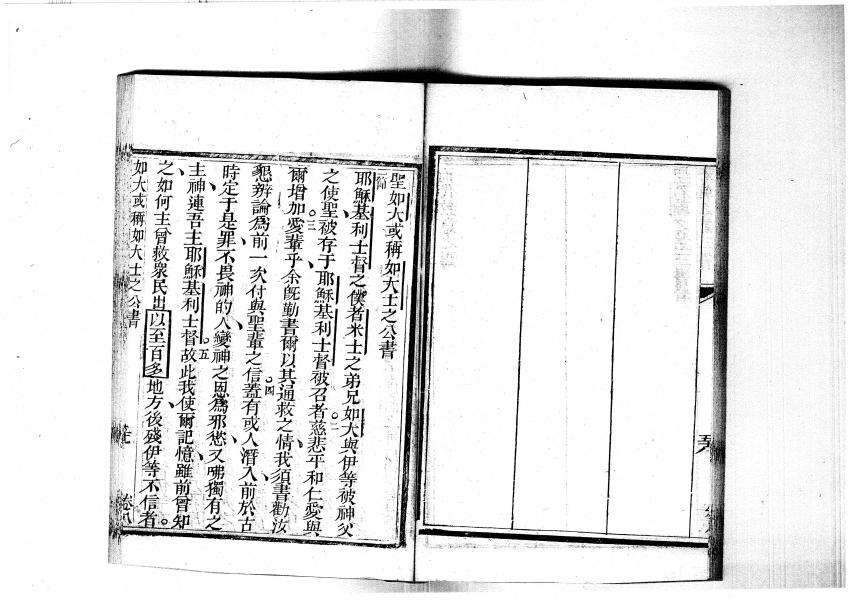 聖如大或稱如大士之公書
耶穌基利士督之僕者米士之弟兄如大與伊等被神父
之使聖被存于耶穌基利士督被召者二慈悲平和仁愛與
爾增加三愛輩乎余旣勤書爾以其通救之情我須書勸汝
懇辨論爲前一次付與聖輩之信四蓋有或人潛入前於古
時定于是罪不畏神的人變神之恩爲邪慾又咈獨有之
主神連吾主耶穌基利士督五故此我使爾記憶雖前曾知
之如何主曾救衆民出以至百多地方後殘伊等不信者
如大或稱如大士之公書
卷八